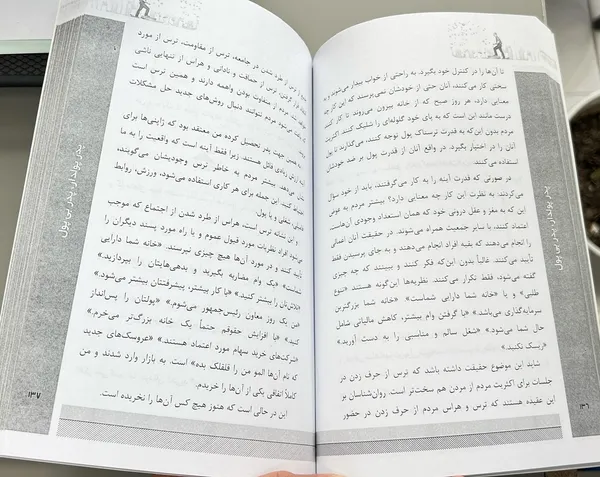 تا آن‌ها را در کنترل خود بگیرد. به راحتی از خواب بیدار می‌شوند و به
سختی کار می‌کنند، آنان حتی از خودشان نمی‌پرسند که این کار چه
معنایی دارد، هر روز صبح که از خانه بیرون می‌روند تا کار کنند
درست مانند این است که به پای خود گلوله‌ای را شلیک کنند. اکثریت
مردم بدون این‌که به قدرت ترسناک پول توجه کنند، می‌گذارند تا پول
آنان را در اختیار بگیرد. در واقع آنان از قدرت پول بر ضد خودشان
استفاده می‌کنند.
در صورتی که قدرت آینه را به کار می‌گرفتند، باید از خود سوال
می‌کردند، به نظرت این کار چه معنایی دارد؟ بیشتر مردم به عوض
این که به مغز و عقل درونی خود که همان استعداد وجودی آن‌هاست
اعتماد کنند، با سایر جمعیت همراه می‌شوند. در حقیقت آنان اعمالی
را انجام می‌دهند که بقیه افراد انجام می‌دهند و به جای پرسیدن فقط
تأیید می‌کنند. غالباً بدون این‌که فکر کنند و ببینند که چه چیزی
گفته می‌شود، فقط تکرار می‌کنند. نظریه‌ها این‌گونه هستند «تنوع
طلبی» و یا «خانه شما دارایی شماست» «خانه شما بزرگترین
سرمایه‌گذاری می‌باشد» «با گرفتن وام بیشتر، کاهش مالیاتی شامل
حال شما می‌شود.» «شغل سالم و مناسبی را به دست آورید.»
«ریسک نکنید.»
شاید این موضوع حقیقت داشته باشد که ترس از حرف زدن در
جلسات برای اکثریت مردم از مردن هم سخت‌تر است. روان‌شناسان بر
این عقیده هستند که ترس و هراس مردم از حرف زدن در حضور
۱۳۶
پدر پولدار، پدر بی پول
از طرد شدن در جامعه، ترس از مقاومت، ترس از مورد
ترس از حماقت و نادانی و هراس از تنهایی ناشی
از متفاوت بودن واهمه دارند و همین ترس است
مردم نتوانند دنبال روش‌های جدید حل مشکلات
همین جهت پدر تحصیل کرده من معتقد بود که ژاپنی‌ها برای
ارزش زیادی قائل هستند. زیرا فقط آینه است که واقعیت را به ما
بیشتر مردم به خاطر ترس وجودیشان می‌گویند،
احتیاط کنید. این جمله برای هر کاری استفاده می‌شود، ورزش، روابط
شغلی و یا پول.
و این نشانه ترس است، هراس از طرد شدن از اجتماع که موجب
می‌شود افراد نظریات مورد قبول عموم و یا راه مورد پسند دیگران را
تأیید کنند و در مورد آن‌ها هیچ چیزی نپرسند. «خانه شما دارایی
شماست» «یک وام مضاربه بگیرید و بدهی‌هایتان را بپردازید.»
«تلاش‌تان را بیشتر کنید.» «با کار بیشتر، پیشرفتتان بیشتر می‌شود.»
«من یک روز معاون رئیس‌جمهور می‌شوم.» «پولتان را پس‌انداز
کنید» «با افزایش حقوقم حتماً یک خانه بزرگ‌تر می‌خرم.»
«شرکت‌های خرید سهام مورد اعتماد هستند.» «عروسک‌های جدید
که نام آن‌ها المو من را قلقلک بده» است. به بازار وارد شدند و من
کاملاً اتفاقی یکی از آن‌ها را خریدم.
این در حالی است که هنوز هیچ کس آن‌ها را نخریده است.
۱۳۷
پدر پولدار، پدر بی پول